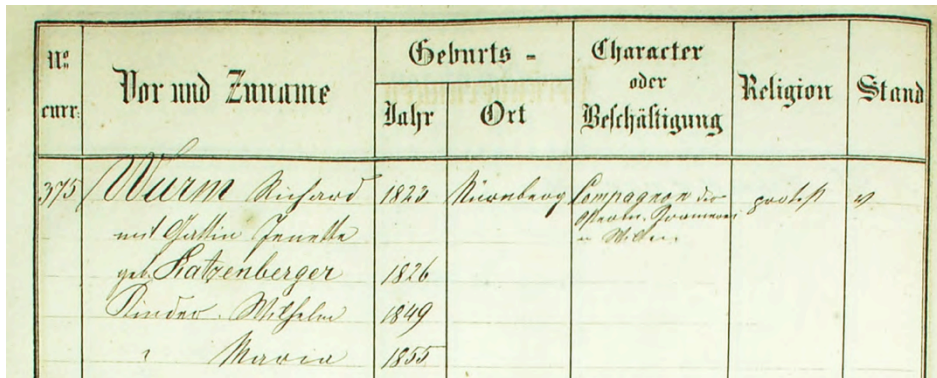 No
curr:
Vor und Zuname
Geburts -
Jahr
Ort
Character
oder
Beschäftigung
Religion
Stand
375 Wurm Richard 1823 Nürnberg Compagnon der protest v
mit Gattin Jenette
in Wilten.
geb. Katzenberger 1826
Kinder. Wilhelm 1849
" Maria 1855